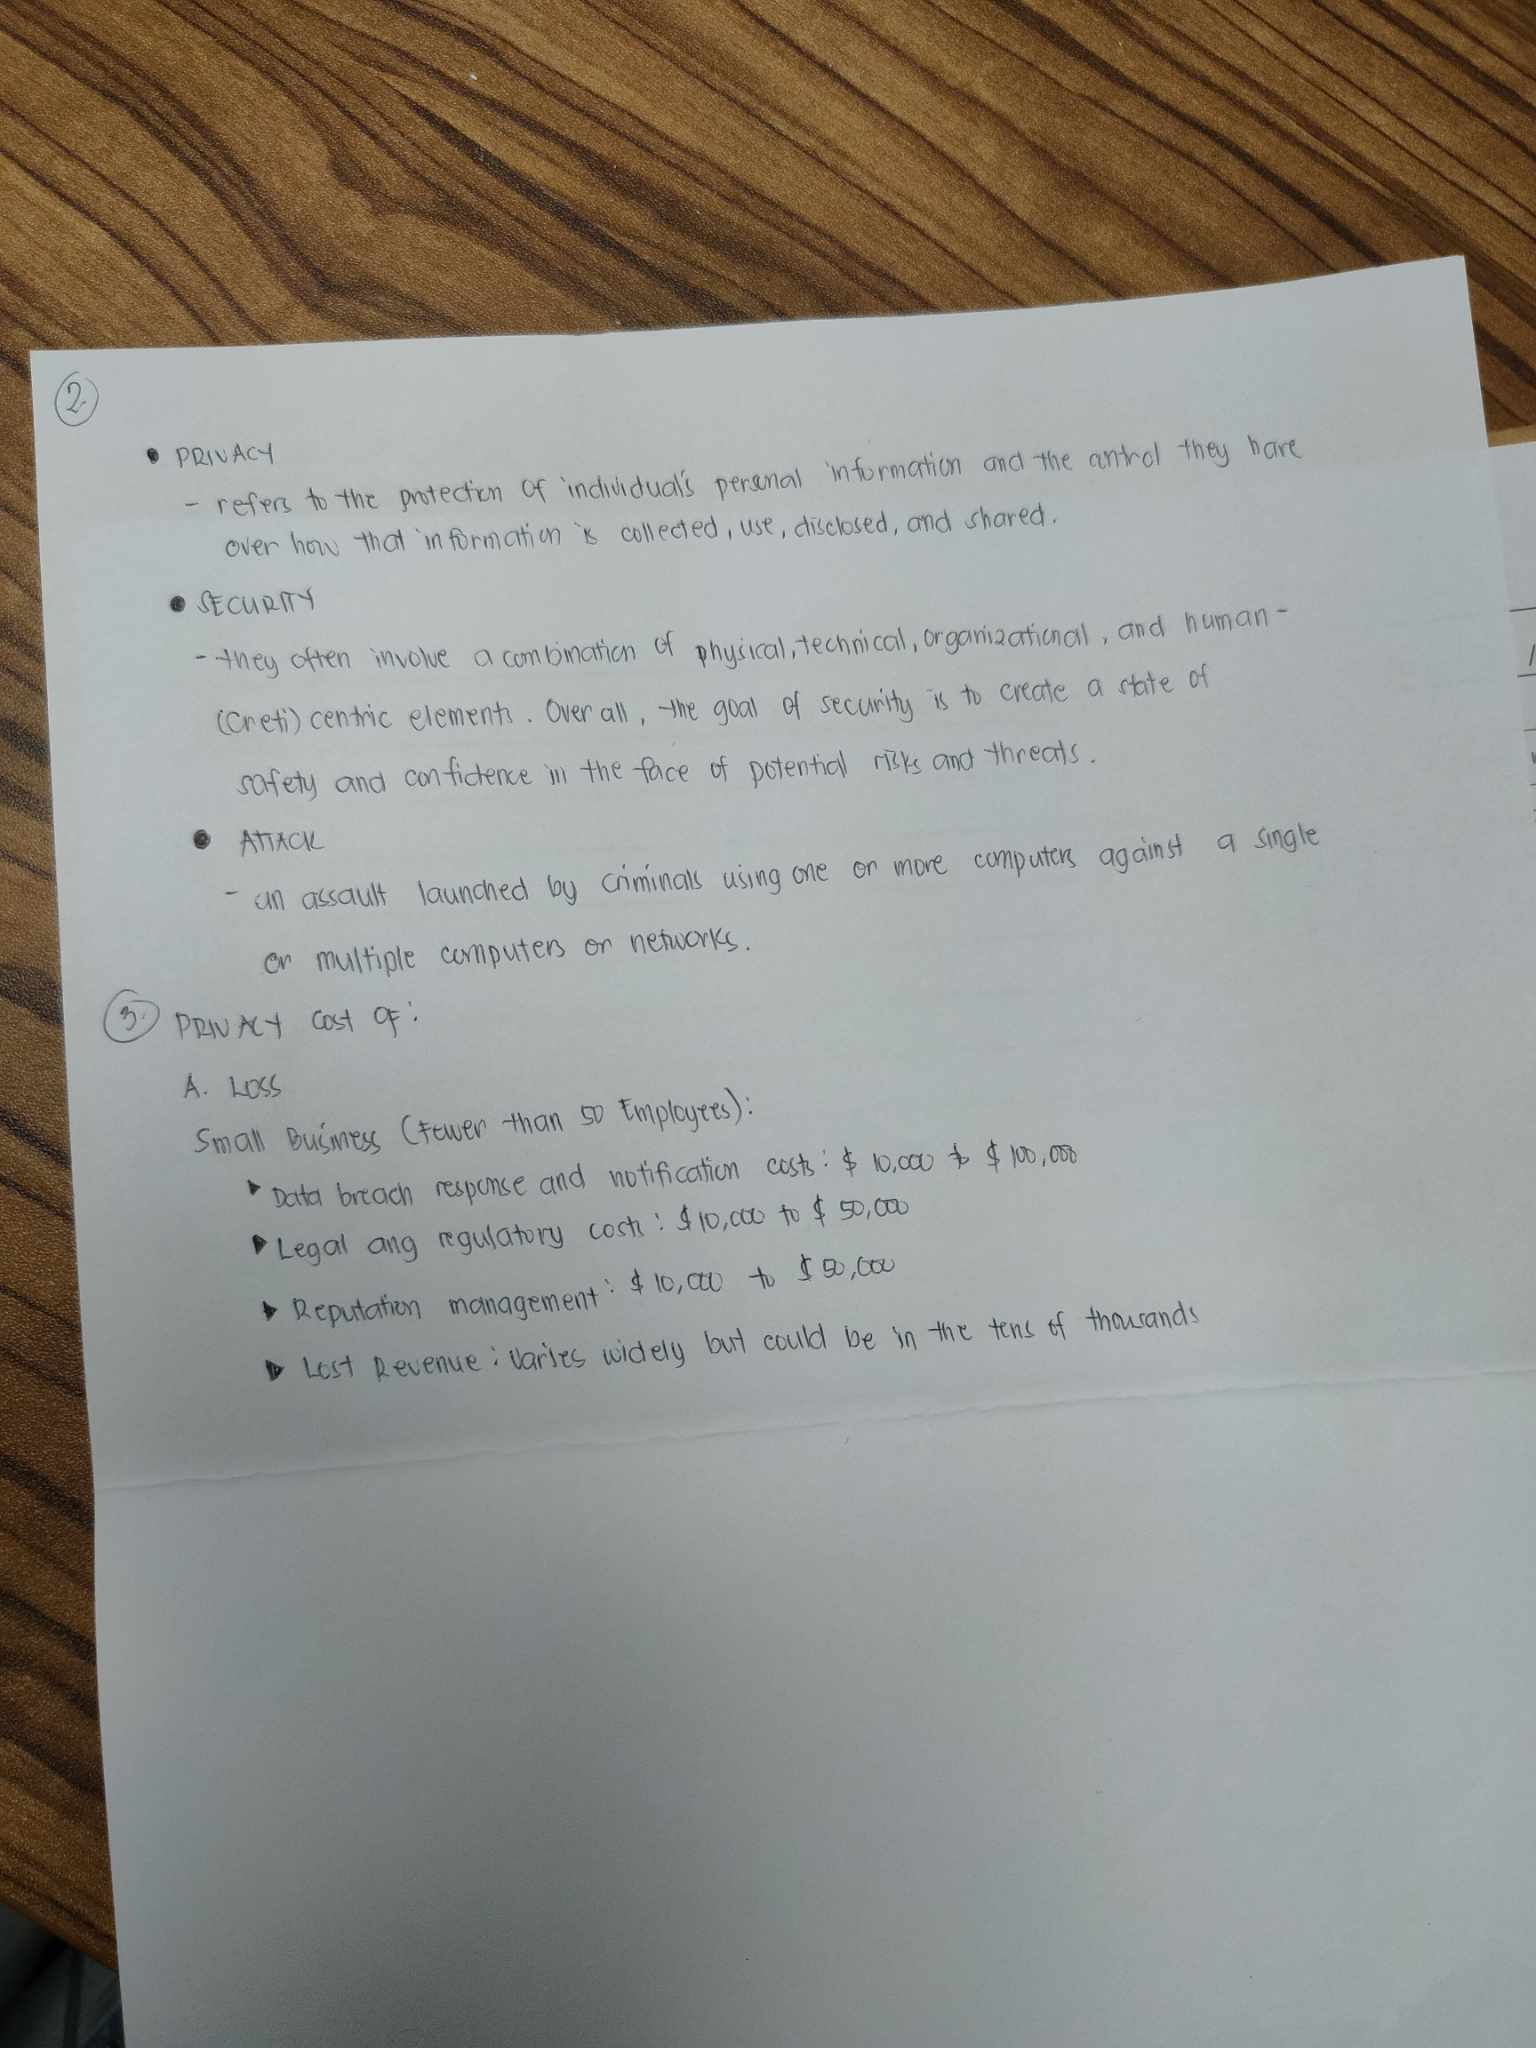 2.
• PRIVACY
- refers to the protection of individual's personal information and the control they have
over how that information is collected, use, disclosed, and shared.
• SECURITY
- they often involve a combination of physical, technical, organizational, and human-
centric elements. Over all, the goal of security is to create a state of
safety and confidence in the face of potential risks and threats.
• ATTACK
- an assault launched by criminals using one or more computers against a single
or multiple computers or networks.
3. PRIVACY Cost OF:
A. LOSS
Small Business (Fewer than 50 Employees):
▶ Data breach response and notification costs: $ 10,000 to $ 100,000
▶ Legal ang regulatory costs: $10,000 to $ 50,000
▶ Reputation management: $ 10,000 to $ 50,000
▶ Lost Revenue: Varies widely but could be in the tens of thousands